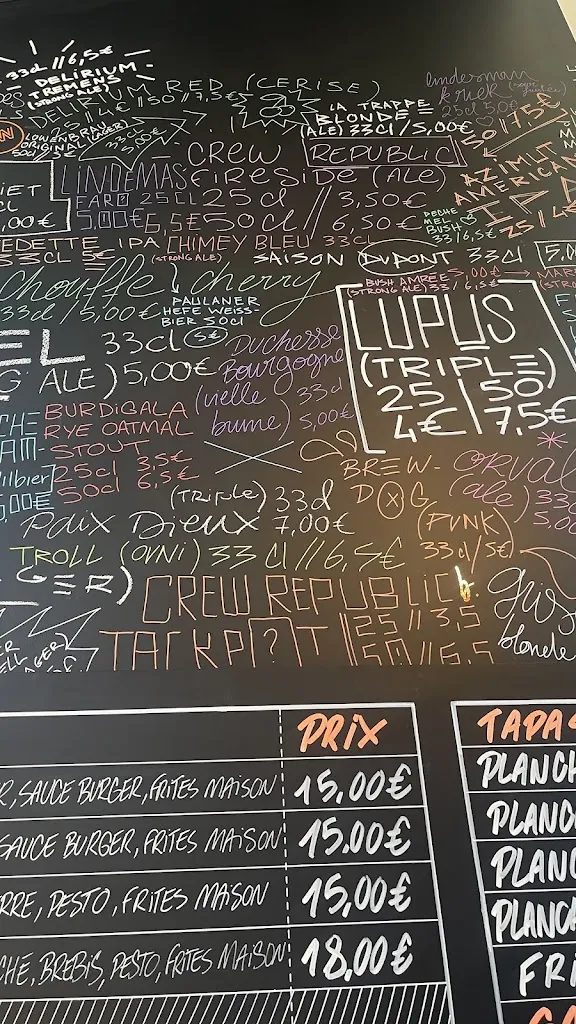 33cl // 6,5€
DELIRIUM
TREMENS
(STRONG ALE)
DELIRIUM RED (CERISE)
linderman
kriek
25cl 5,00€
LA TRAPPE
BLONDE
(ALE) 33CL / 5,00€
LOWENBRAU
ORIGINAL (LAGER)
50cl / 5€
CREW REPUBLIC
FIRESIDE (ALE)
25cl // 3,50€
50cl 6,50€
LINDEMAS
FARO 25CL
5,00€
AZIMUT
AMERICAN
IPA
PECHE
MEL
BUSH
33/6,5€
VEDETTE IPA
33CL 5€
CHIMEY BLEU 33CL
(STRONG ALE)
6,5€
SAISON DUPONT 33Cl
BUSH AMBREE 5,00€
(STRONG ALE) 33/6,5€
Chouffe Cherry
33cl / 5,00€
PAULANER
HEFE WEISS-
BIER 50cl
(5€)
LUPUS
(TRIPLE)
25 | 50
4€ | 7,5€
EL 33cl
ALE) 5,00€
Duchesse
Bourgogne
(vielle
brune) 33cl
5,00€
BURDIGALA
RYE OATMAL
STOUT
25cl 3,5€
50cl 6,5€
BREW-
DOG
(PUNK)
33cl/5€
ORVAL
(ale)
(TRIPLE) 33cl
Paix Dieux 7,00€
TROLL (OVNI) 33Cl // 6,5€
GER)
CREW REPUBLIC
JACKPOT
25 // 3,5
50 // 6,5
blonde
PRIX
R, SAUCE BURGER, FRITES MAISON 15,00€
SAUCE BURGER, FRITES MAISON 15,00€
RRE, PESTO, FRITES MAISON 15,00€
CHE, BREBIS, PESTO, FRITES MAISON 18,00€
TAPAS
PLANCH
PLANC
PLANC
PLANCH
FRI